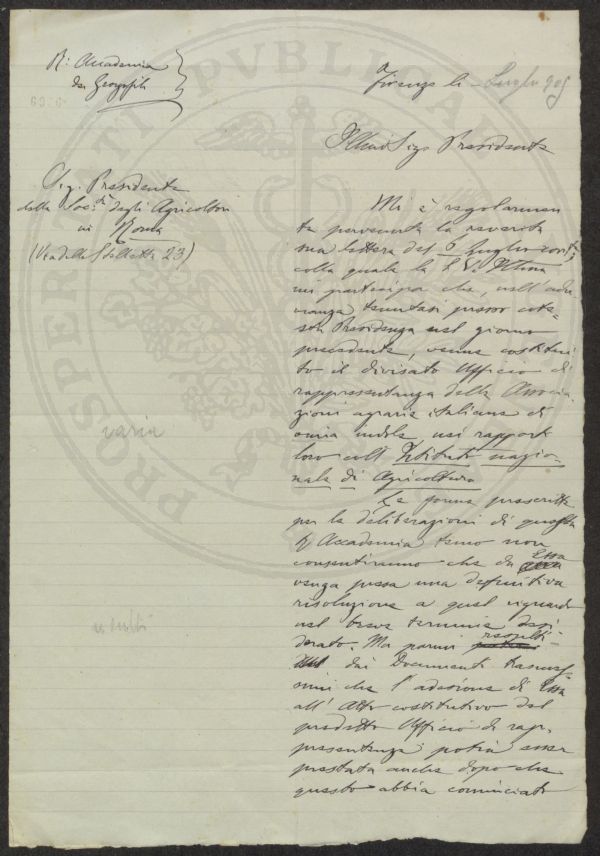 R: Accademia
dei Georgofili
Firenze li Luglio 905
Illmo Sigr Presidente
Sig. Presidente
della Soc.tà degli Agricoltori
in Roma
(Via della Stelletta 23)
Mi è regolarmen
te pervenuta la reverita
sua lettera del 6 Luglio corrte,
colla quale la S. V. Illma
mi partecipa che, nell'adu
nanza tenutasi presso cote-
sta Presidenza nel giorno
precedente, venne costitui
to il divisato Ufficio di
rappresentanza delle Associa
zioni agrarie italiane di
ogni indole nei rapporti
loro coll'Istituto nazio-
nale di Agricoltura
Le forme prescritte
per le deliberazioni di questa
R Accademia temo non
consentiranno che da Essa
venga presa una definitiva
risoluzione a quel riguardo
nel breve termine desi
derato. Ma parmi risulti
dai Documenti trasmes
simi che l'adesione di Essa
all'Atto costitutivo del
predetto Ufficio di rap-
presentanza potrà esser
prestata anche dopo che
questo abbia cominciato
varia
PROSPERITATI PVBLICAE